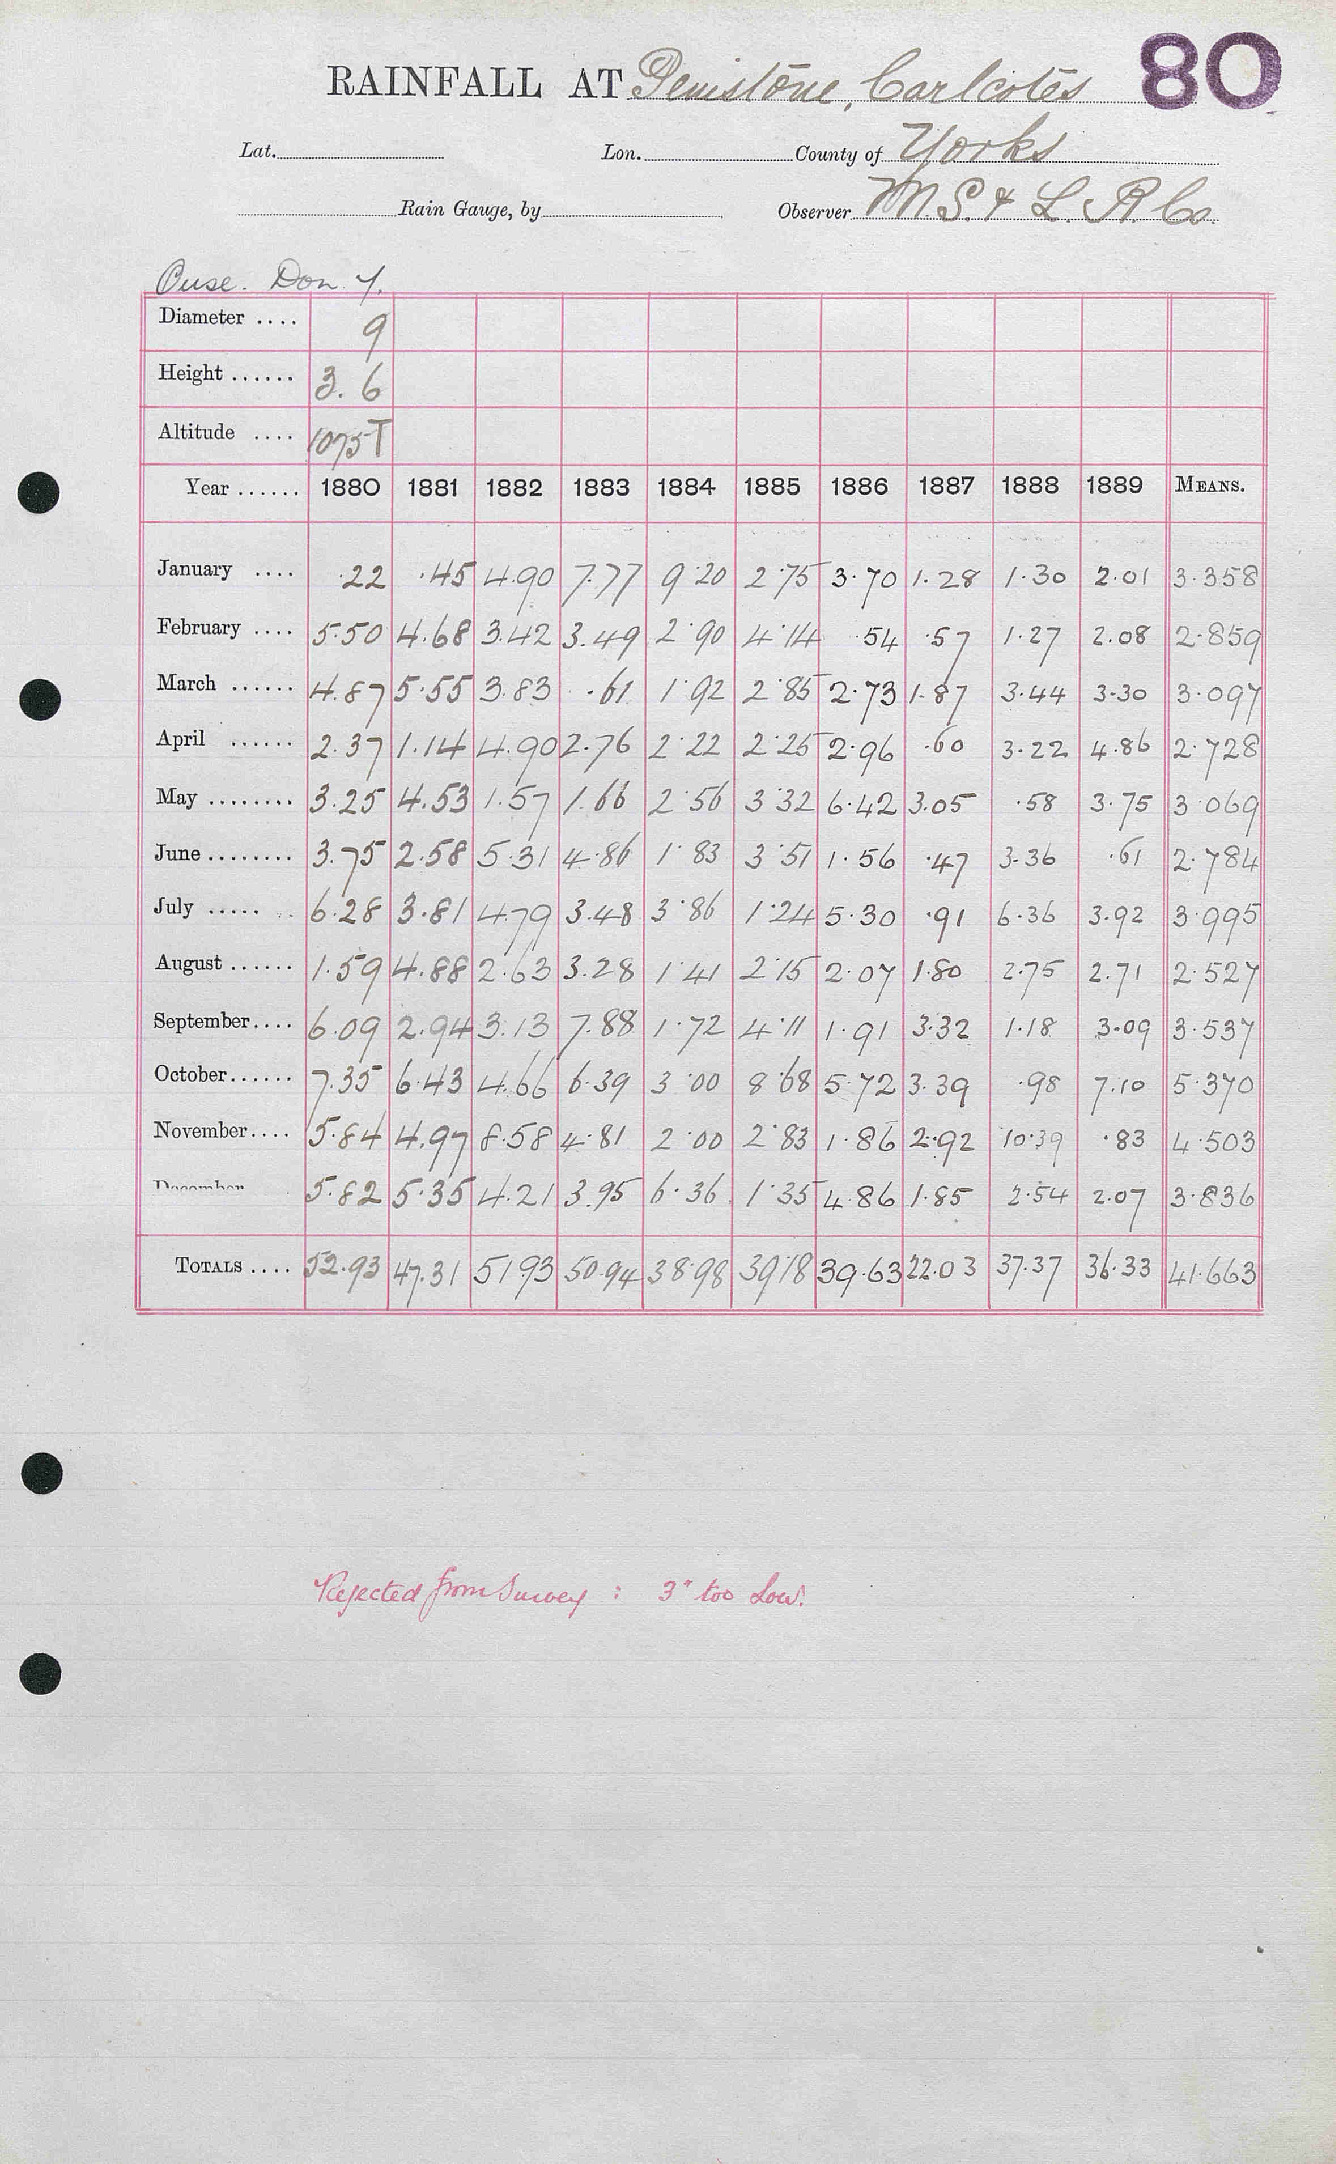 RAINFALL AT Penistone, Carlcotes 80
Lat. Lon. County of Yorks
Rain Gauge, by Observer M. S. & L. R. Co.
Ouse. Don Y.
Diameter .... 9
Height ...... 3. 6
Altitude .... 1075 T
Year ...... 1880 1881 1882 1883 1884 1885 1886 1887 1888 1889 MEANS.
January .... .22 .45 4.90 7.77 9.20 2.75 3.70 1.28 1.30 2.01 3.358
February .... 5.50 4.68 3.42 3.49 2.90 4.14 .54 .57 1.27 2.08 2.859
March ...... 4.87 5.55 3.83 .61 1.92 2.85 2.73 1.87 3.44 3.30 3.097
April ...... 2.37 1.14 4.90 2.76 2.22 2.25 2.96 .60 3.22 4.86 2.728
May ........ 3.25 4.53 1.57 1.66 2.56 3.32 6.42 3.05 .58 3.75 3.069
June ........ 3.75 2.58 5.31 4.86 1.83 3.51 1.56 .47 3.36 .61 2.784
July ..... 6.28 3.81 4.79 3.48 3.86 1.24 5.30 .91 6.36 3.92 3.995
August ...... 1.59 4.88 2.63 3.28 1.41 2.15 2.07 1.80 2.75 2.71 2.527
September .... 6.09 2.94 3.13 7.88 1.72 4.11 1.91 3.32 1.18 3.09 3.537
October ...... 7.35 6.43 4.66 6.39 3.00 8.68 5.72 3.39 .98 7.10 5.370
November .... 5.84 4.97 8.58 4.81 2.00 2.83 1.86 2.92 10.39 .83 4.503
December 5.82 5.35 4.21 3.95 6.36 1.35 4.86 1.85 2.54 2.07 3.836
TOTALS .... 52.93 47.31 51.93 50.94 38.98 39.18 39.63 22.03 37.37 36.33 41.663
Rejected from Survey : 3" too low.